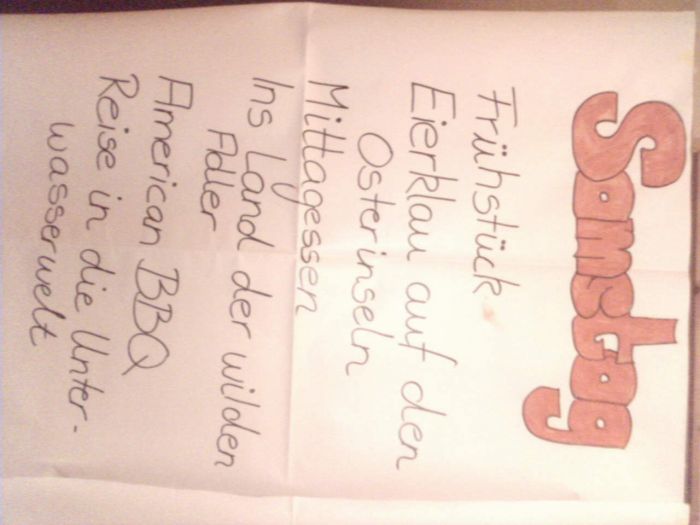 Samstag
Frühstück
Eierklau auf den
Osterinseln
Mittagessen
Ins Land der wilden
Adler
American BBQ
Reise in die Unter-
wasserwelt